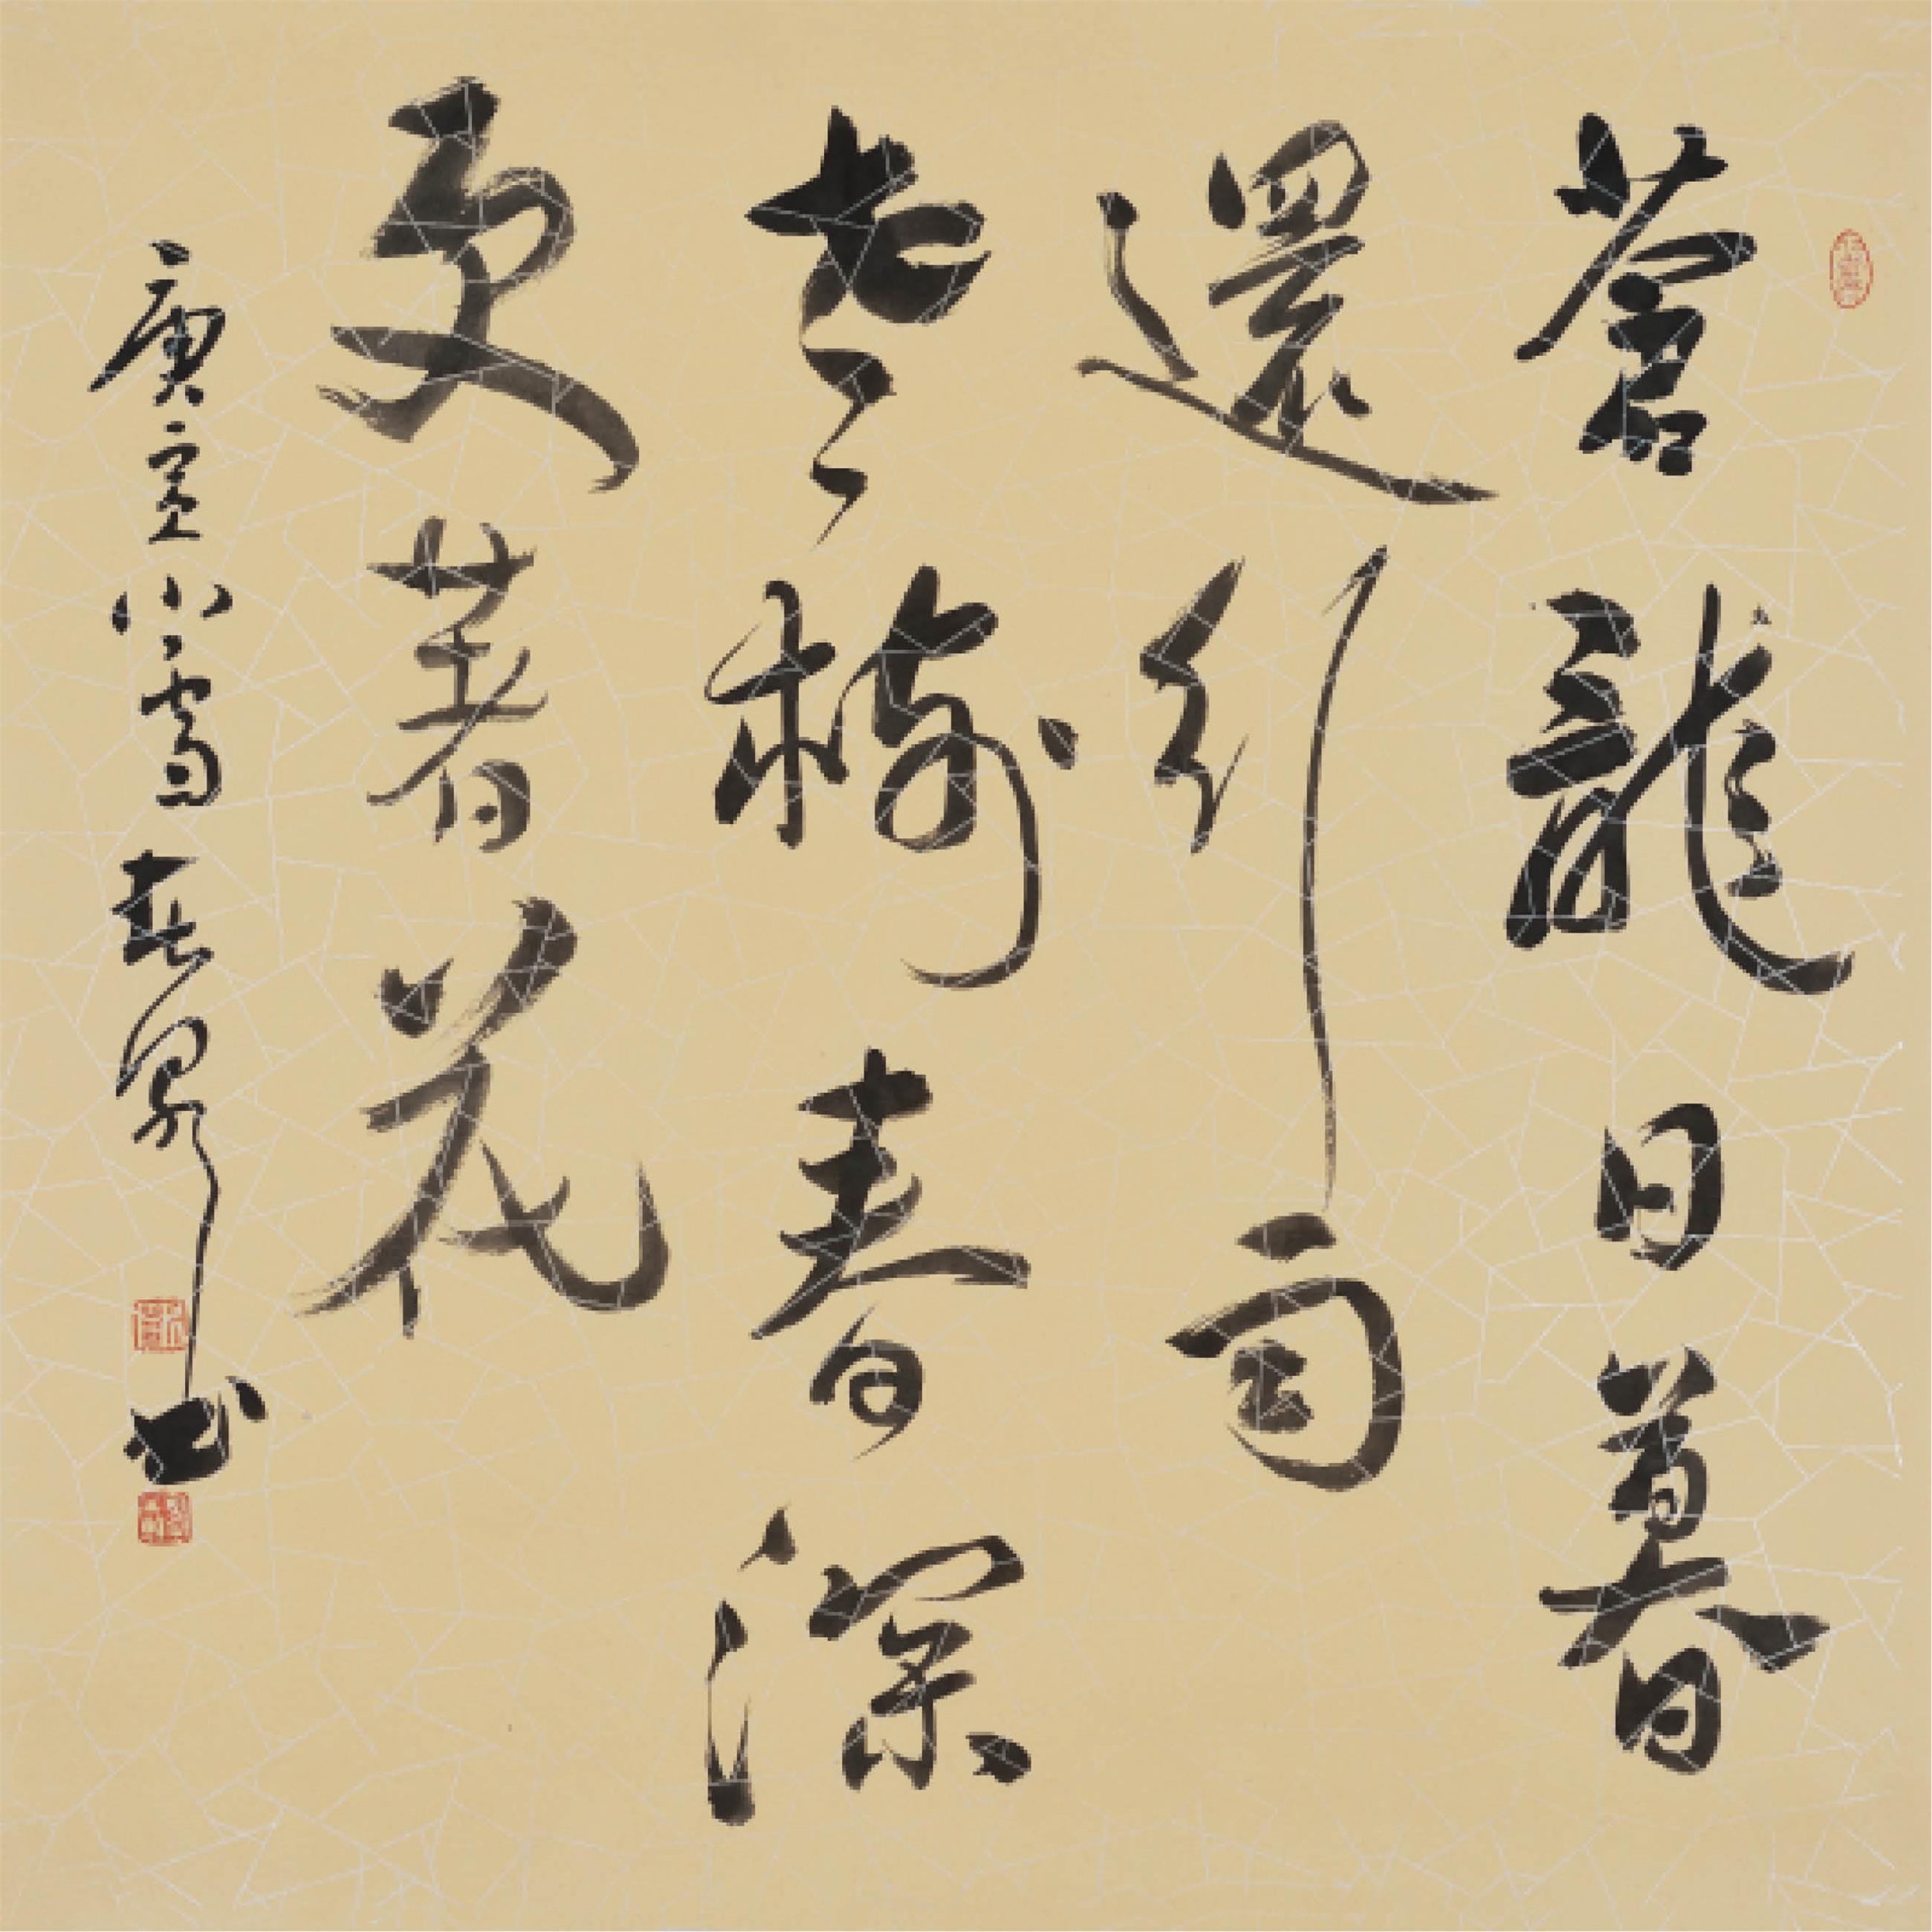 蒼龍日暮
還行雨
老樹春深
更著花
庚寅小雪春泉书